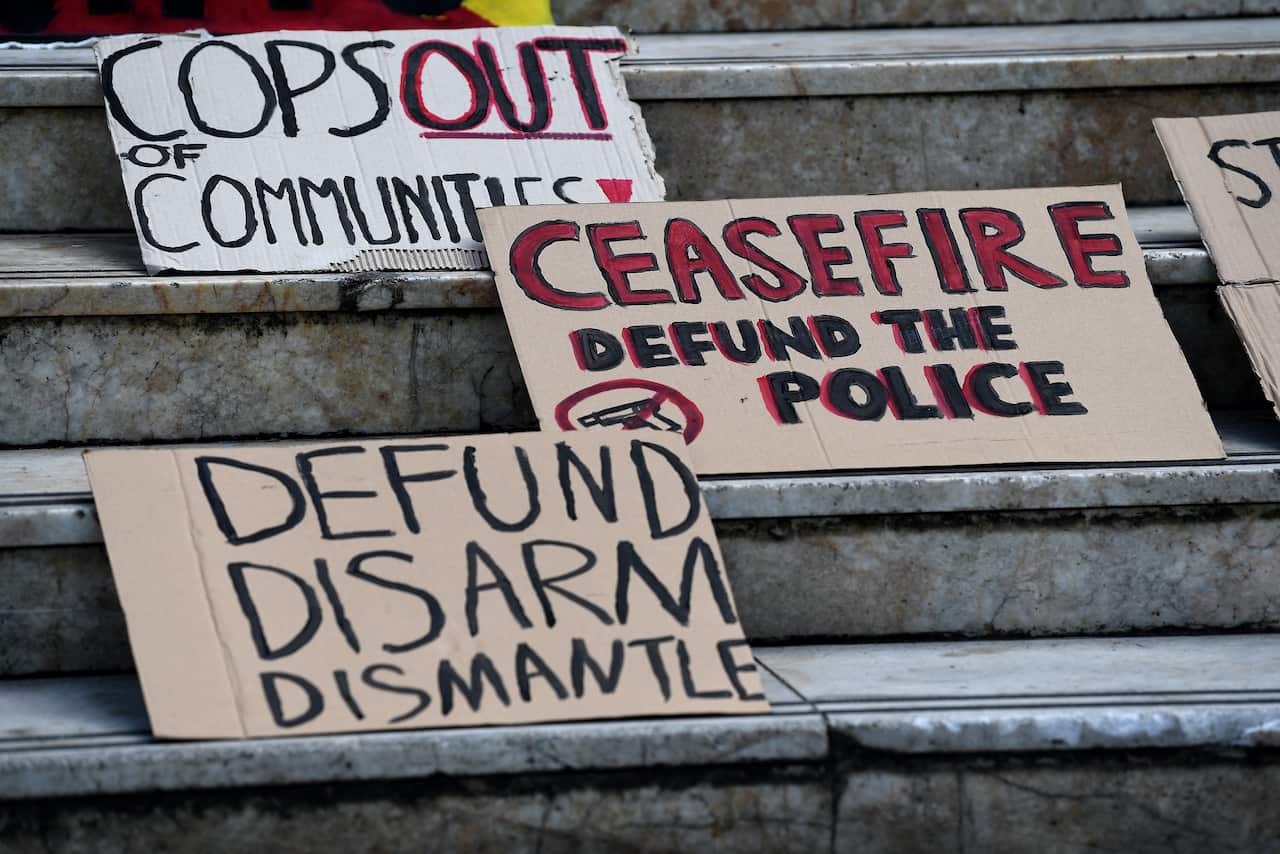 COPS OUT
OF
COMMUNITIES!
CEASEFIRE
DEFUND THE
POLICE
DEFUND
DISARM
DISMANTLE